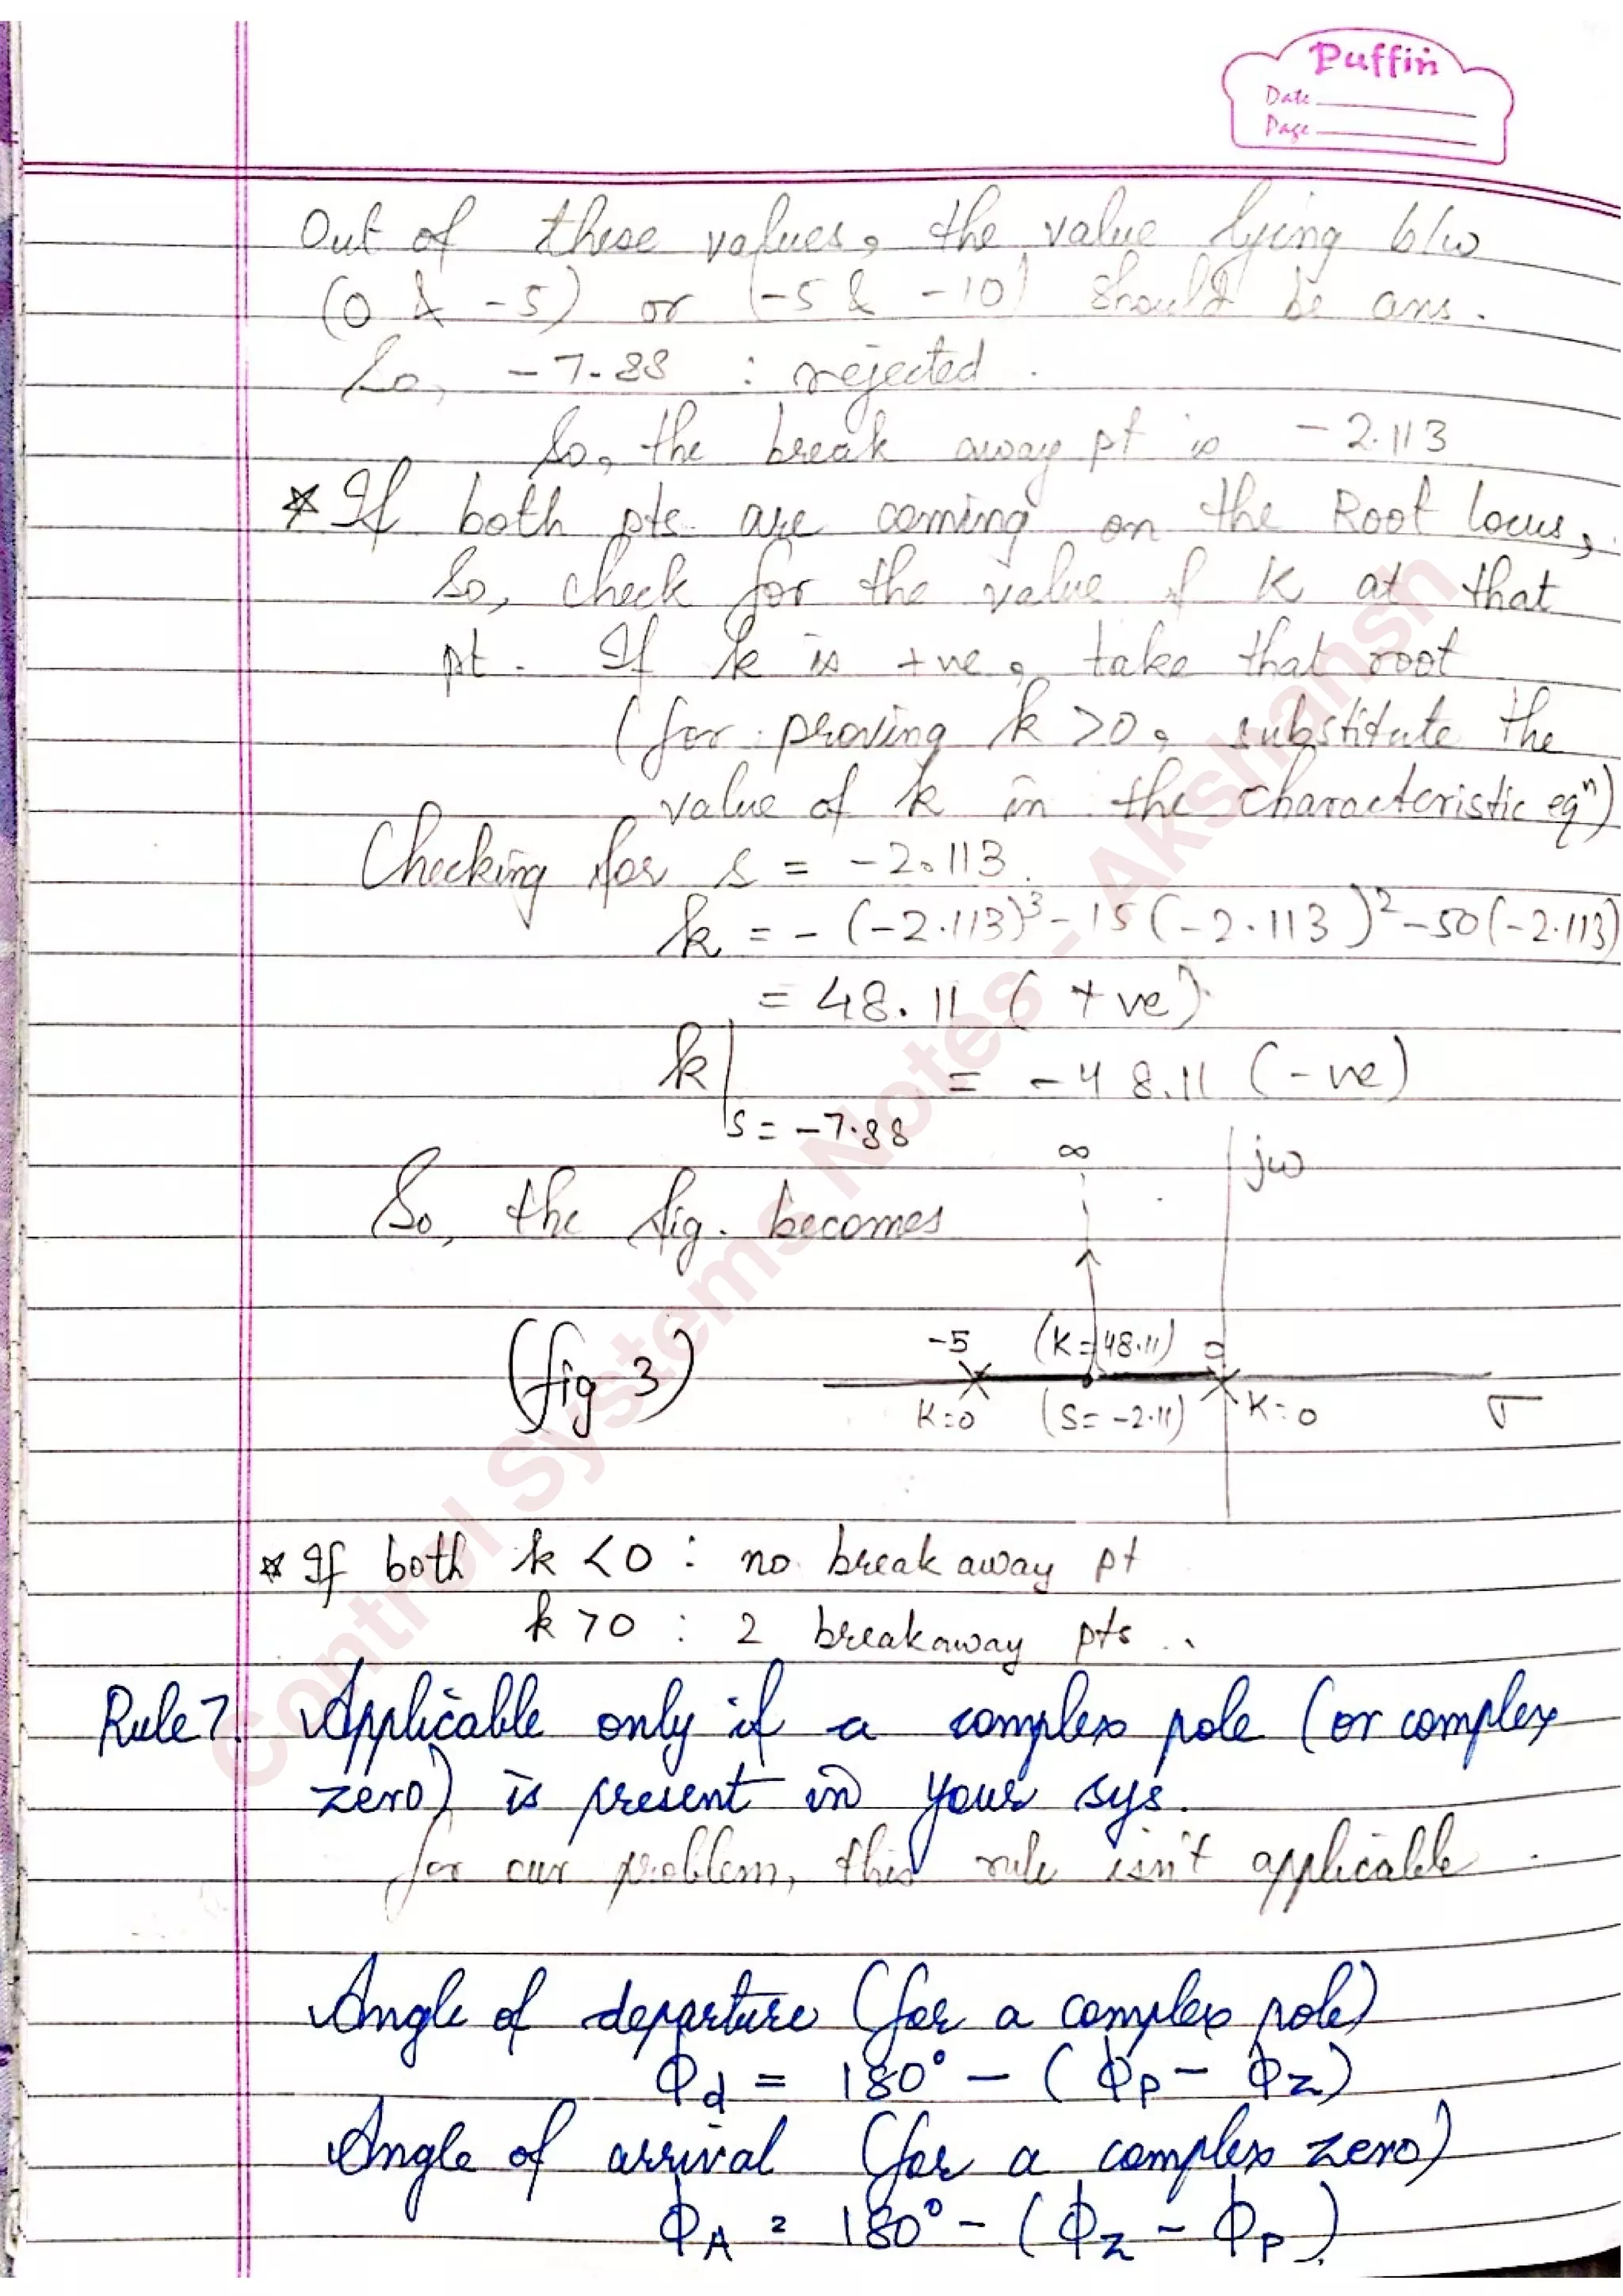 Puffin
Date
Page
Out of these values, the value lying b/w
(0 & -5) or (-5 & -10) should be ans.
So, -7.88 : rejected.
So, the break away pt is -2.113
* If both pts are coming on the Root locus,
So, check for the value of K at that
pt. If k is +ve, take that root
(for proving k >0, substitute the
value of k in the characteristic eqⁿ)
Checking for s = -2.113.
k = - (-2.113)³ - 15 (-2.113)² - 50 (-2.113)
= 48.11 (+ve)
k|s = -7.88 = -48.11 (-ve)
∞
jω
So, the fig. becomes
(fig 3)
-5 (K = 48.11) 0
K=0 (S= -2.11) K=0 σ
* If both k <0 : no break away pt
k >0 : 2 breakaway pts.
Rule 7. Applicable only if a complex pole (or complex
zero) is present in your sys.
for our problem, this rule isn't applicable.
Angle of departure (for a complex pole)
ϕd = 180° - (ϕP - ϕZ)
Angle of arrival (for a complex zero)
ϕA = 180° - (ϕZ - ϕP)
Control Systems Notes - Akshansh